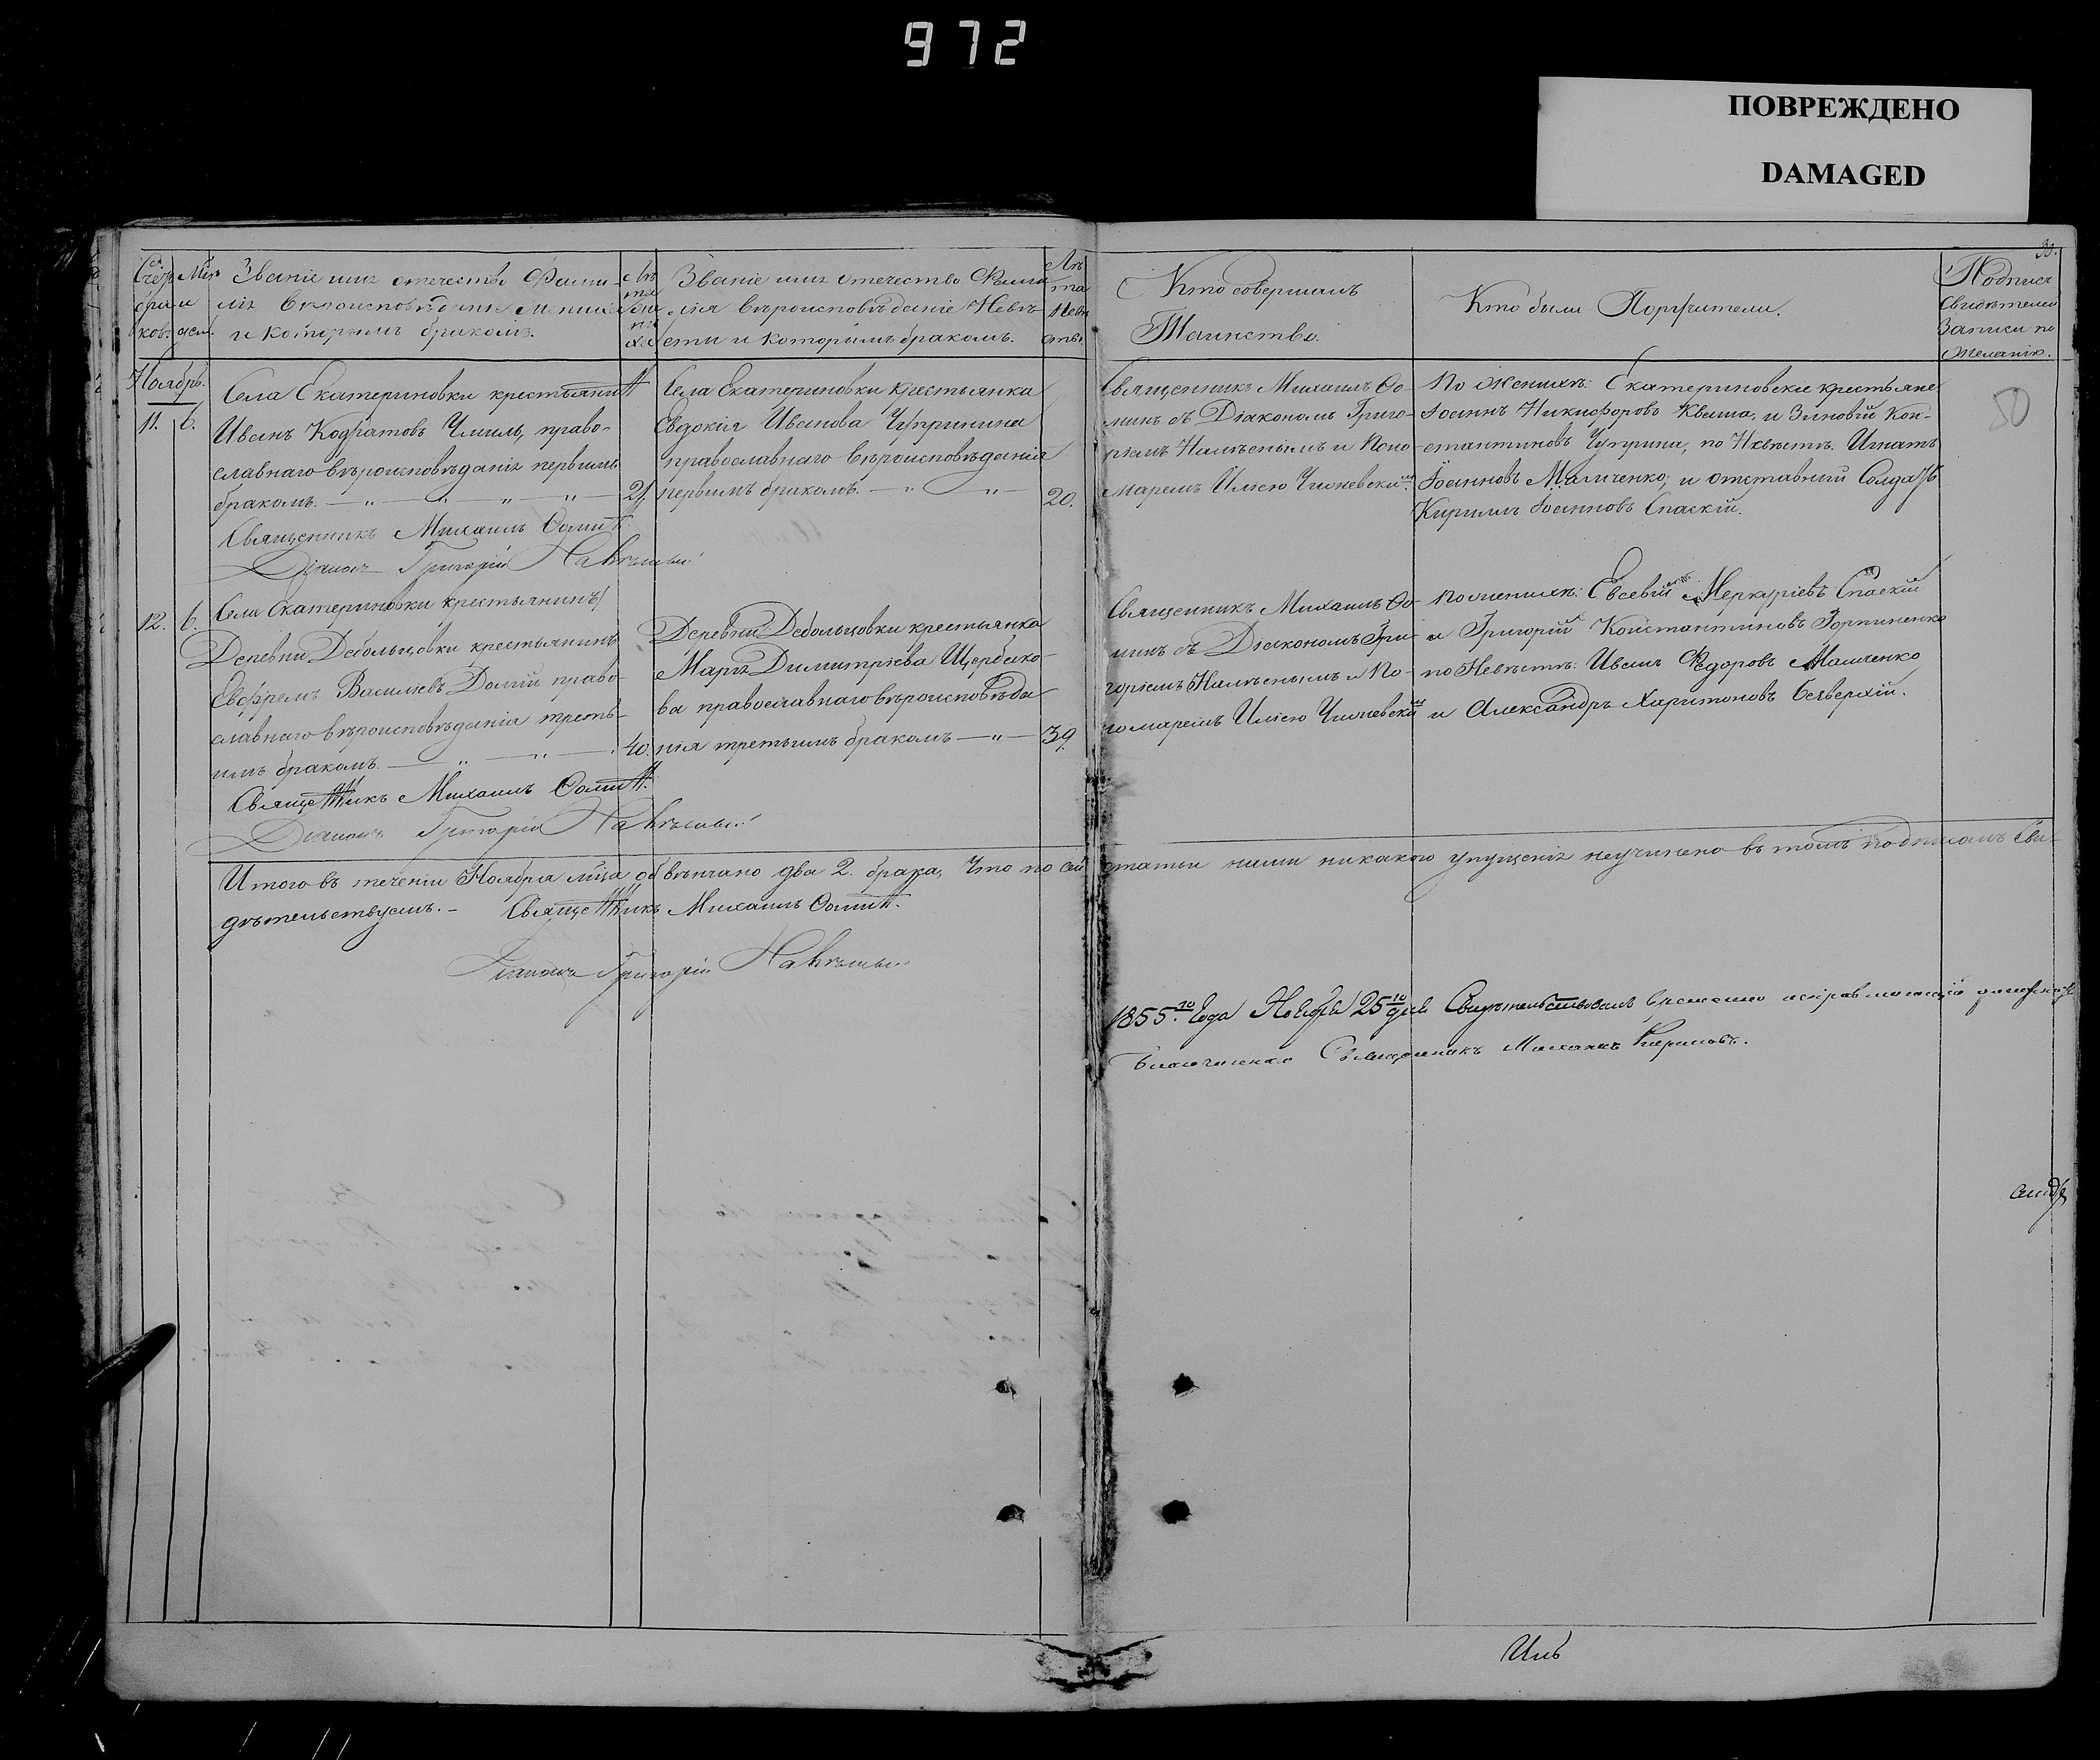 972
ПОВРЕЖДЕНО
DAMAGED
30.
50
Счет браковъ.
Мѣсяцъ и день.
Званіе имя отечество Фами-
лія вѣроисповѣданіе Жениха
и которымъ бракомъ.
Лѣта Жениха
Званіе имя отечество Фами-
лія вѣроисповѣданіе Невѣ-
сты и которымъ бракомъ.
Лѣта Невѣсты.
Кто совершалъ
Таинство.
Кто были Поручители.
Подпись
Свидѣтелей
Записи по
желанію.
Ноябрь.
11. 6.
Села Екатериновки крестьянинъ
Иванъ Кодратовъ Чмиль, право-
славнаго вѣроисповѣданія первымъ
бракомъ. 21.
Священникъ Михаилъ Ѳоминъ
Діаконъ Григорій
Села Екатериновки крестьянка
Евдокія Иванова Чупринина
православнаго вѣроисповѣданія
первымъ бракомъ. 20.
Священникъ Михаилъ Ѳо-
минъ съ Діакономъ Григо-
ріемъ и Поно-
маремъ Иліею
По Женихѣ: Екатериновскіе крестьяне
Іоаннъ Никифоровъ Кваша, и Зиновій Кон-
стантиновъ Чуприна, по Невѣстѣ: Игнатъ
Іоанновъ Малченко; и отставный Солдатъ
Кирилъ Іоанновъ Спаскій.
12. 6.
Села Екатериновки крестьянинъ
Деревни Дебольцовки крестьянинъ
Евфремъ Василіевъ Долгій право-
славнаго вѣроисповѣданія треть-
имъ бракомъ. 40.
Священникъ Михаилъ Ѳоминъ.
Діаконъ Григорій
Деревни Дебольцовки крестьянка
Марѳа Димитріева Щербако-
ва православнаго вѣроисповѣда
нія третьимъ бракомъ 39.
Священникъ Михаилъ Ѳо-
минъ съ Діакономъ Гри-
горіемъ и По-
номаремъ Иліею
по женихѣ: Евсевій Меркуріевъ Спаскій
и Григорій Константиновъ Горпиненко
по Невѣстѣ: Иванъ Федоровъ Малченко
и Александръ Харитоновъ
Итого въ теченіи Ноября мѣсяца обвѣнчано два 2. брака, Что по сей статьи нами никакого упущенія неучинено въ томъ подписомъ Сви-
дѣтельствуемъ. – Священникъ Михаилъ Ѳоминъ.
Діаконъ Григорій
1855го Года Ноября 25го дня Свидѣтельствовалъ временно исправляющій должность
Благочиннаго Священникъ Михаилъ